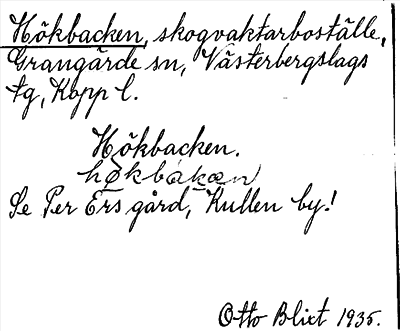 Hökbacken, skogvaktarboställe,
Grangärde sn, Västerbergslags
tg, Kopp l.
Hökbacken.
Se Per Ers gård, Kullen by!
Otto Blixt 1935.